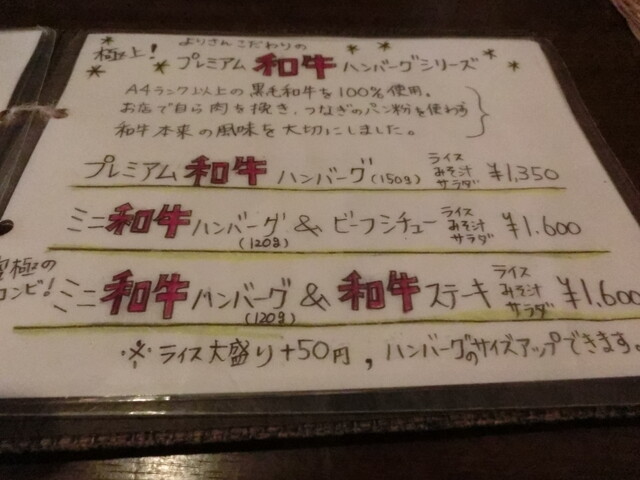 よりさんこだわりの
極上！プレミアム和牛ハンバーグシリーズ
A4ランク以上の黒毛和牛を100%使用。
お店で自ら肉を挽き、つなぎのパン粉を使わず
和牛本来の風味を大切にしました。
プレミアム和牛ハンバーグ(150g) ライス みそ汁 サラダ ¥1,350
ミニ和牛ハンバーグ(120g) & ビーフシチュー ライス みそ汁 サラダ ¥1,600
極のコンビ！ミニ和牛ハンバーグ(120g) & 和牛ステーキ ライス みそ汁 サラダ ¥1,600
※ライス大盛り+50円，ハンバーグのサイズアップできます。